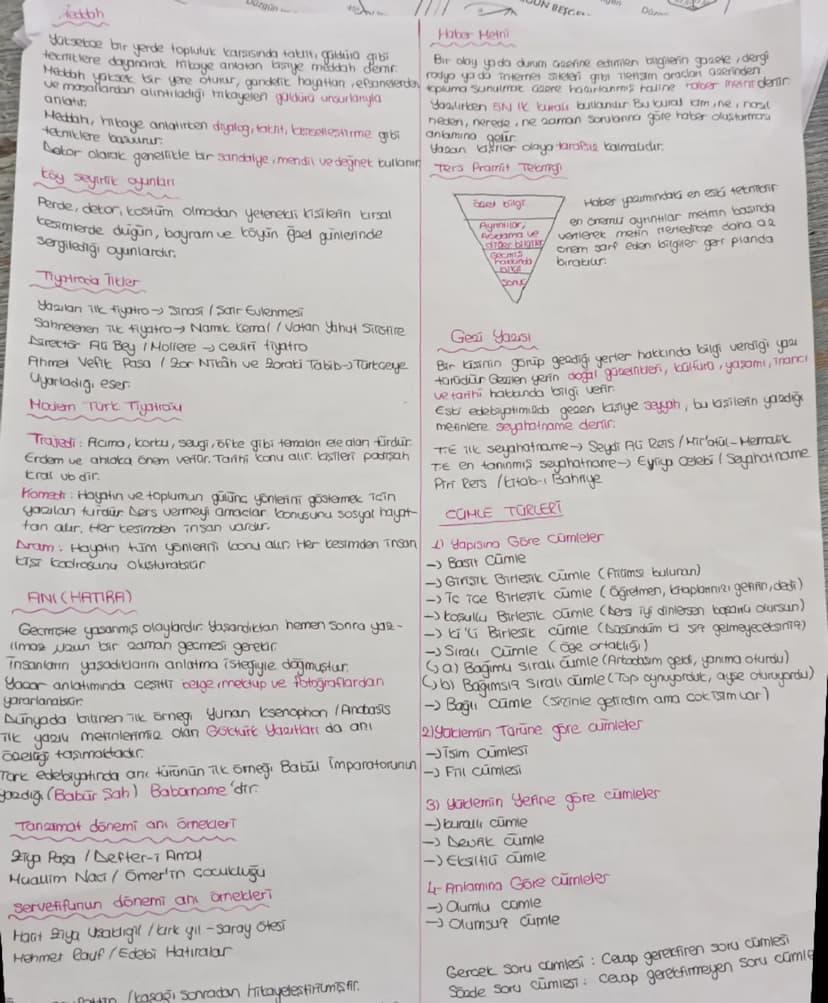 Meddah
Yüksekçe bir yerde topluluk karşısında taklit, güldürü gibi
tekniklere dayanarak hikaye anlatan kişiye meddah denir.
Meddah yüksek bir yere oturur, gündelik hayattan, efsanelerden
ve masallardan alıntıladığı hikayeleri güldürü unsurlarıyla
anlatır.
Meddah, hikaye anlatırken diyalog, taklit, kişiselleştirme gibi
tekniklere başvurur.
Dekor olarak genellikle bir sandalye, mendil ve değnek kullanır
Köy seyirlik oyunları
Perde, dekor, kostüm olmadan yetenekli kişilerin kırsal
kesimlerde düğün, bayram ve köyün özel günlerinde
sergilediği oyunlardır.
Tiyatroda İlkler
Yazılan ilk tiyatro → Şinasi / Şair Evlenmesi
Sahnelenen ilk tiyatro → Namık Kemal / Vatan Yahut Silistre
Direktör Ali Bey / Moliere → çeviri tiyatro
Ahmet Vefik Paşa / Zor Nikâh ve Zoraki Tabib → Türkçeye
Uyarladığı eser
Modern Türk Tiyatrosu
Trajedi: Acıma, korku, sevgi, öfke gibi temaları ele alan türdür
Erdem ve ahlaka önem verilir. Tarihi konu alır. kişileri padişah
kral vb dir.
Komedi: Hayatın ve toplumun gülünç yönlerini göstermek için
yazılan türdür. Ders vermeyi amaçlar konusunu sosyal hayat-
tan alır. Her kesimden insan vardır.
Dram: Hayatın tüm yönlerini konu alır. Her kesimden insan
kişi kadrosunu oluşturabilir
ANI (HATIRA)
Geçmişte yaşanmış olaylardır. Yaşandıktan hemen sonra yaz-
ılmaz uzun bir zaman geçmesi gerekir.
İnsanların yaşadıklarını anlatma isteğiyle doğmuştur.
Yazar anlatımında çeşitli belge, mektup ve fotoğraflardan
yararlanabilir.
Dünyada bilinen ilk örneği Yunan Ksenophon / Anabasis
İlk yazılı metinlerimiz olan Göktürk Yazıtları da anı
özelliği taşımaktadır.
Türk edebiyatında anı türünün ilk örneği Babül İmparatorunun
yazdığı (Babür Şah) Baburname'dir.
Tanzimat dönemi anı örnekleri
Ziya Paşa / Defter-i Amal
Muallim Naci / Ömer'in Çocukluğu
Servetifunun dönemi anı örnekleri
Halit Ziya Uşaklıgil / Kırk yıl - Saray Ötesi
Mehmet Rauf / Edebi Hatıralar
/ kaşağı sonradan hikayeleştirilmiştir.
Haber Metni
Bir olay ya da durum üzerine edinilen bilgilerin gazete, dergi
radyo ya da internet siteleri gibi iletişim araçları üzerinden
topluma sunulmak üzere hazırlanmış haline haber metni denir.
Yazılırken 5N 1K kuralı kullanılır Bu kural kim, ne, nasıl
neden, nerede, ne zaman sorularına göre haber oluşturması
anlamına gelir.
Yazan kişiler olaya tarafsız kalmalıdır.
Ters Piramit Tekniği
özet bilgi
Ayrıntılar,
Açıklama ve
diğer bilgiler
Geçmiş
hakkında
bilgi
Sonuç
Haber yazımındaki en eski tekniktir
en önemli ayrıntılar metnin başında
verilerek metin ilerledikçe daha az
önem sarf eden bilgiler geri planda
bırakılır.
Gezi Yazısı
Bir kişinin görüp gezdiği yerler hakkında bilgi verdiği yazı
türüdür Gezilen yerin doğal güzellikleri, kültürü, yaşamı, inancı
ve tarihi hakkında bilgi verir.
Eski edebiyatımızda gezen kişiye seyyah, bu kişilerin yazdığı
metinlere seyahatname denir.
T.E ilk seyahatname → Seydi Ali Reis / Mir'atül-Memalik
TE en tanınmış seyahatname → Evliya Çelebi / Seyahatname
Piri Reis / Kitab-ı Bahriye
CÜMLE TÜRLERİ
1) Yapısına Göre Cümleler
→ Basit Cümle
→ Girişik Birleşik Cümle (Fiilimsi bulunan)
→ İç içe Birleşik cümle (Öğretmen, kitaplarınızı getirin, dedi)
→ Koşullu Birleşik cümle (Dersi iyi dinlersen başarılı olursun)
→ Ki'li Birleşik cümle (Düşündüm ki siz gelmeyeceksiniz)
→ Sıralı Cümle (öge ortaklığı)
↳ a) Bağımlı sıralı cümle (Arkadaşım geldi, yanıma oturdu)
↳ b) Bağımsız sıralı cümle (Top oynuyorduk, ayşe oturuyordu)
→ Bağlı Cümle (Sizinle gelirdim ama çok işim var)
2) Yüklemin Türüne göre cümleler
→ İsim Cümlesi
→ Fiil cümlesi
3) Yüklemin Yerine göre cümleler
→ kurallı cümle
→ Devrik cümle
→ Eksiltili cümle
4- Anlamına Göre Cümleler
→ Olumlu cümle
→ Olumsuz cümle
Gerçek soru cümlesi: Cevap gerektiren soru cümlesi
Sözde soru cümlesi: cevap gerektirmeyen soru cümle